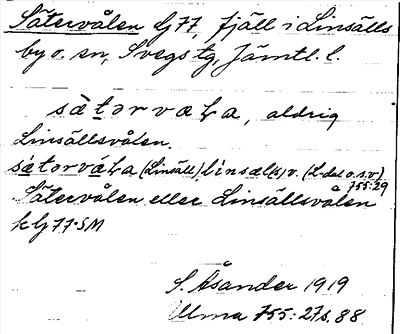 Sätervålen dj 77, fjäll i Linsälls
by o. sn, Svegs tg, Jämtl. l.
sàtərvaƚa, aldrig
Linsällsvålen.
sátərváƚa (Linsäll), linsæl(s)v. (L-dal o.s.v)
755:29
Sätervålen eller Linsällsvålen
klj 77·SM
S. Åsander 1919
Ulma 755:27 s. 88